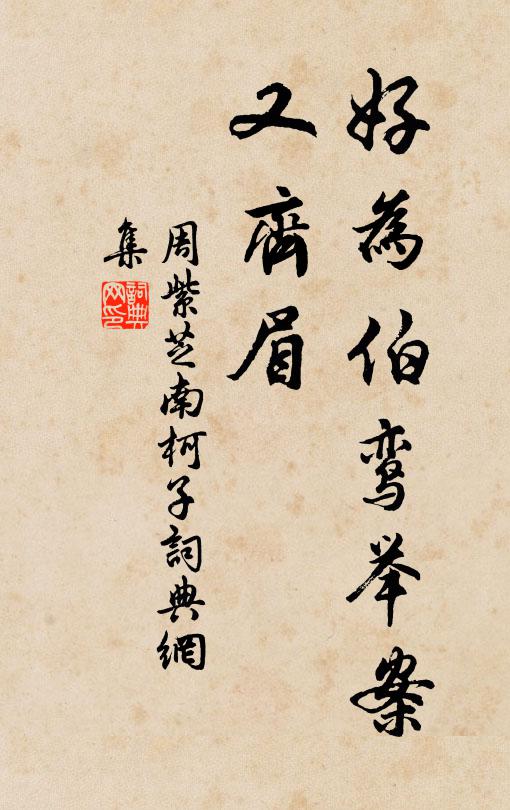 好為伯鸾举案
又齊眉
周紫芝南柯子詞典網
集
詞典
网印